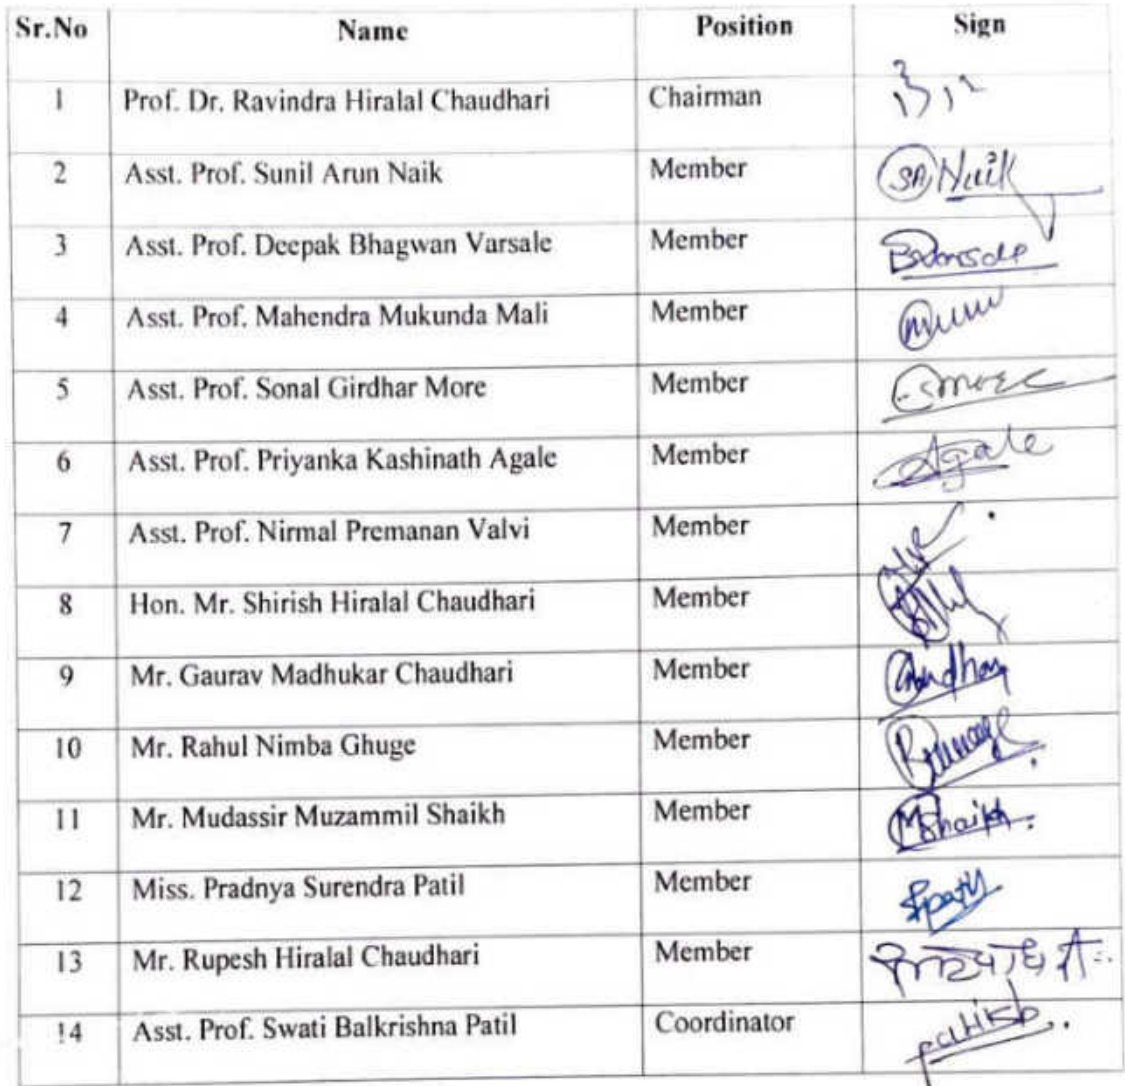 Sr.No Name Position Sign
1 Prof. Dr. Ravindra Hiralal Chaudhari Chairman
2 Asst. Prof. Sunil Arun Naik Member SA Naik
3 Asst. Prof. Deepak Bhagwan Varsale Member
4 Asst. Prof. Mahendra Mukunda Mali Member
5 Asst. Prof. Sonal Girdhar More Member
6 Asst. Prof. Priyanka Kashinath Agale Member Agale
7 Asst. Prof. Nirmal Premanan Valvi Member
8 Hon. Mr. Shirish Hiralal Chaudhari Member
9 Mr. Gaurav Madhukar Chaudhari Member
10 Mr. Rahul Nimba Ghuge Member
11 Mr. Mudassir Muzammil Shaikh Member MShaikh.
12 Miss. Pradnya Surendra Patil Member
13 Mr. Rupesh Hiralal Chaudhari Member
14 Asst. Prof. Swati Balkrishna Patil Coordinator